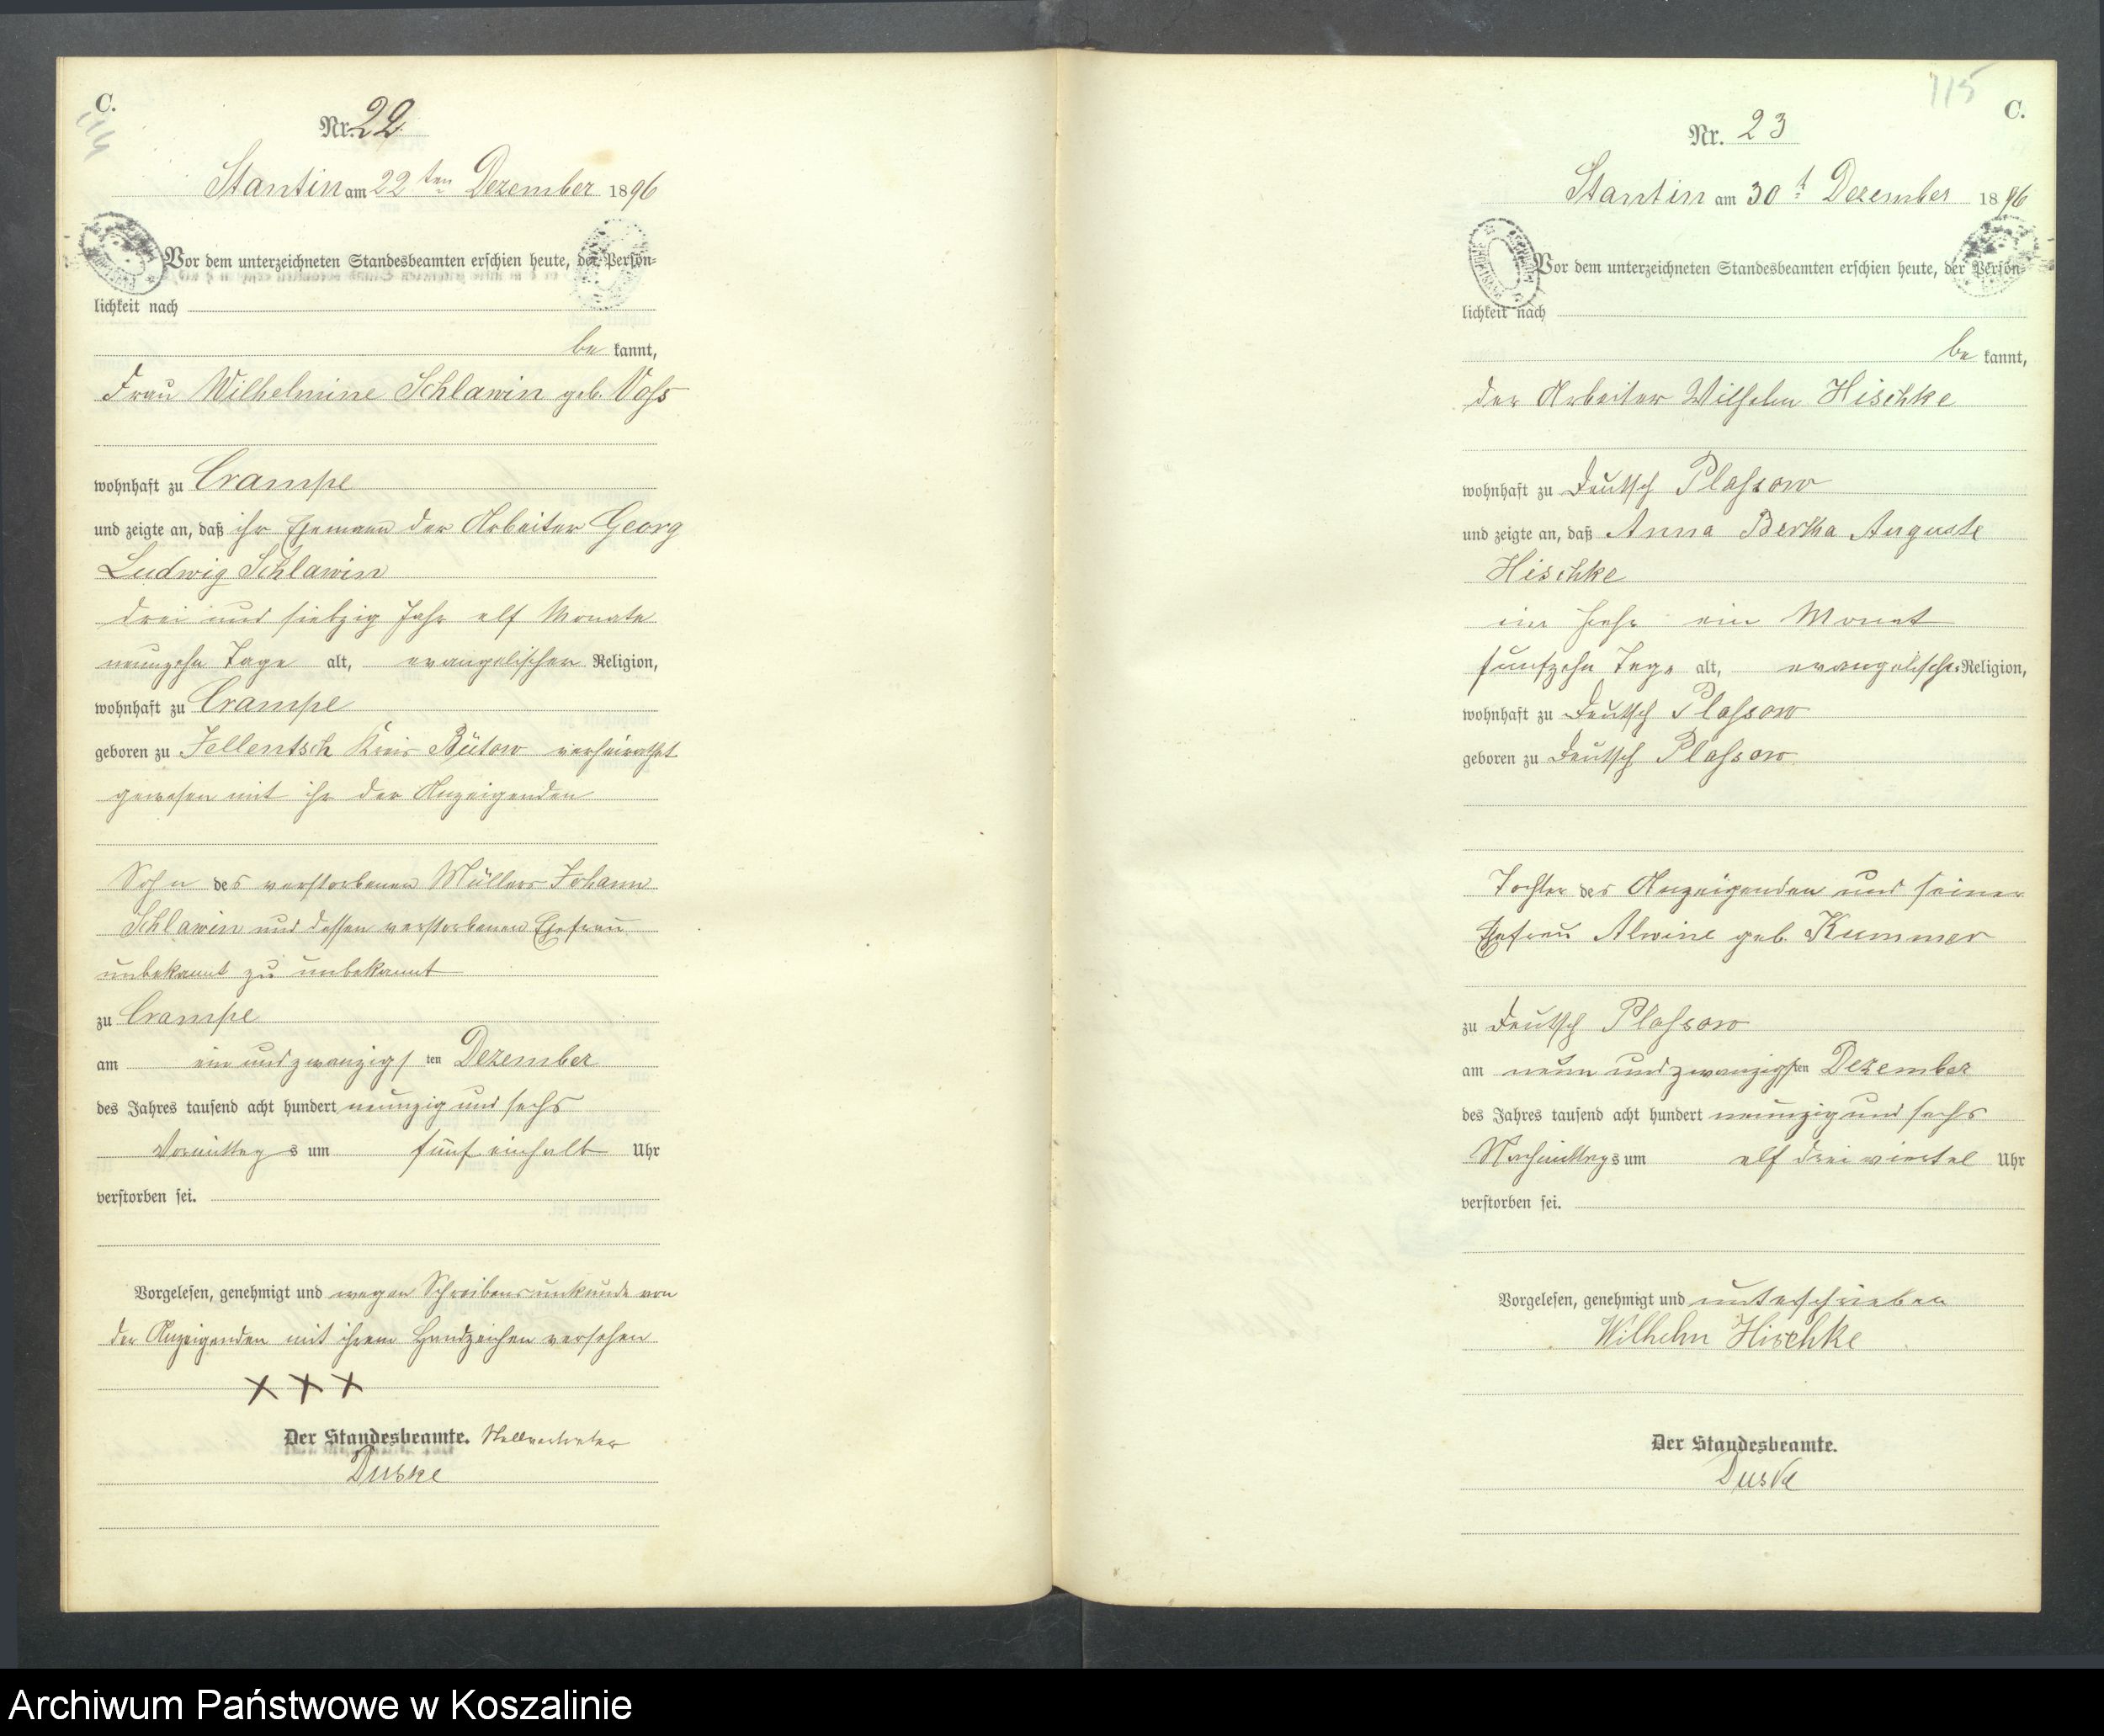 C.
114
Nr. 22
Stantin am 22 ten Dezember 1896
Vor dem unterzeichneten Standesbeamten erschien heute, der Persön-
lichkeit nach
be kannt,
Frau Wilhelmine Schlawin geb. Voss
wohnhaft zu Crampe
und zeigte an, daß ihr Ehemann der Arbeiter Georg
Ludwig Schlawin
drei und siebzig Jahr elf Monate
neunzehn Tage alt, evangelischer Religion,
wohnhaft zu Crampe
geboren zu Jellentsch Kreis Bütow verheirathet
gewesen mit ihr der Anzeigenden
Sohn des verstorbenen Müllers Johann
Schlawin und dessen verstorbenen Ehefrau
unbekannt zu unbekannt
zu Crampe
am ein und zwanzigsten Dezember
des Jahres tausend acht hundert neunzig und sechs
Vormittags um fünf einhalb Uhr
verstorben sei.
Vorgelesen, genehmigt und wegen Schreibensunkunde von
der Anzeigenden mit ihrem Handzeichen versehen
XXX
Der Standesbeamte. Stellvertreter
Duske
115
C.
Nr. 23
Stantin am 30 t Dezember 1896
Vor dem unterzeichneten Standesbeamten erschien heute, der Persön-
lichkeit nach
be kannt,
der Arbeiter Wilhelm Hischke
wohnhaft zu Deutsch Plassow
und zeigte an, daß Anna Bertha Auguste
Hischke
ein Jahr ein Monat
fünfzehn Tage alt, evangelischer Religion,
wohnhaft zu Deutsch Plassow
geboren zu Deutsch Plassow
Tochter des Anzeigenden und seiner
Ehefrau Alwine geb. Kummer
zu Deutsch Plassow
am neun und zwanzigsten Dezember
des Jahres tausend acht hundert neunzig und sechs
Nachmittags um elf drei viertel Uhr
verstorben sei.
Vorgelesen, genehmigt und unterschrieben
Wilhelm Hischke
Der Standesbeamte.
Duske
Archiwum Państwowe w Koszalinie